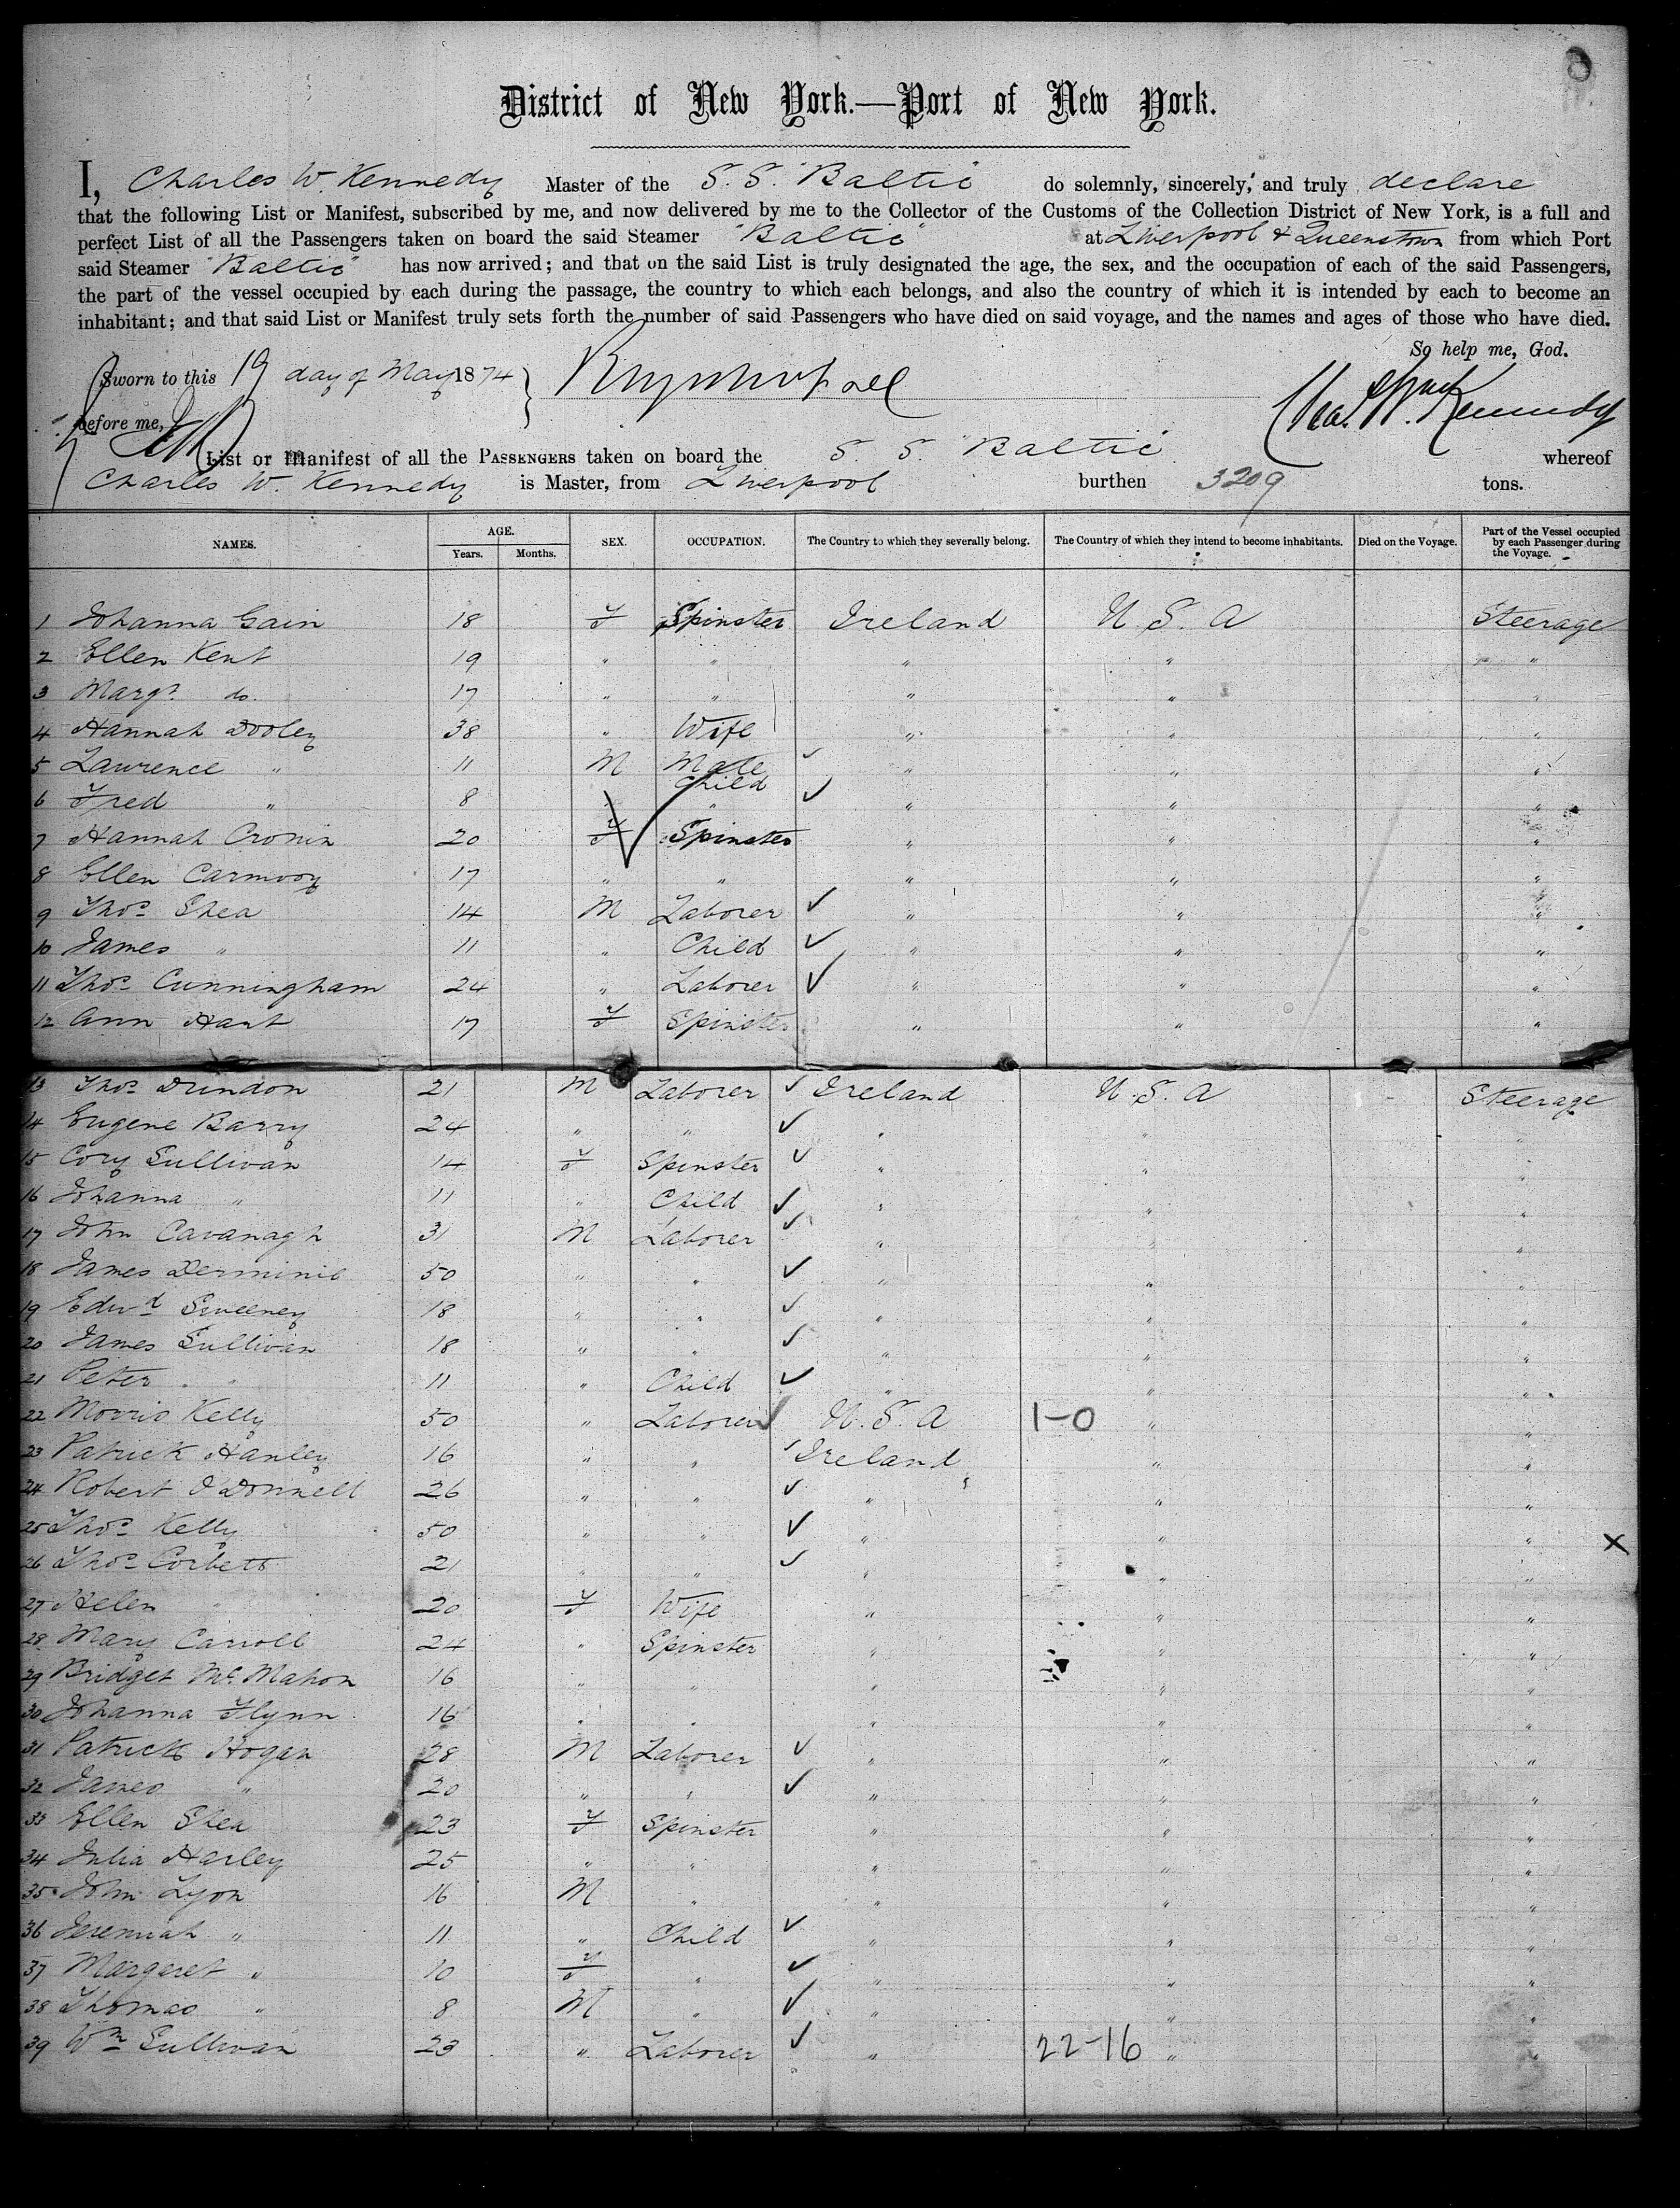 8
District of New York.—Port of New York.
I, Charles W. Kennedy Master of the S.S. "Baltic" do solemnly, sincerely, and truly declare
that the following List or Manifest, subscribed by me, and now delivered by me to the Collector of the Customs of the Collection District of New York, is a full and
perfect List of all the Passengers taken on board the said Steamer "Baltic" at Liverpool & Queenstown from which Port
said Steamer "Baltic" has now arrived; and that on the said List is truly designated the age, the sex, and the occupation of each of the said Passengers,
the part of the vessel occupied by each during the passage, the country to which each belongs, and also the country of which it is intended by each to become an
inhabitant; and that said List or Manifest truly sets forth the number of said Passengers who have died on said voyage, and the names and ages of those who have died.
So help me, God.
Sworn to this 19 day of May 1874
Chas. W. Kennedy
before me,
List or Manifest of all the PASSENGERS taken on board the S. S. Baltic whereof
Charles W. Kennedy is Master, from Liverpool burthen 3209 tons.
NAMES. AGE. Years. Months. SEX. OCCUPATION. The Country to which they severally belong. The Country of which they intend to become inhabitants. Died on the Voyage. Part of the Vessel occupied by each Passenger during the Voyage.
1 Johanna Gain 18 F Spinster Ireland U.S.A Steerage
2 Ellen Kent 19 " " " " "
3 Margt. do. 17 " " " " "
4 Hannah Dooley 38 " Wife " " "
5 Lawrence " 11 M Male Child ✓ " " "
6 Fred " 8 " " ✓ " " "
7 Hannah Cronin 20 F Spinster " " "
8 Ellen Carmody 17 " " " " "
9 Thos Shea 14 M Laborer ✓ " " "
10 James " 11 " Child ✓ " " "
11 Thos Cunningham 24 " Laborer ✓ " " "
12 Ann Hart 17 F Spinster " " "
13 Thos Drindon 21 M Laborer ✓ Ireland U.S.A Steerage
14 Eugene Barry 24 " " ✓ " " "
15 Cory Sullivan 14 F Spinster ✓ " " "
16 Johanna " 11 " Child ✓ " " "
17 John Cavanagh 31 M Laborer ✓ " " "
18 James 50 " " ✓ " " "
19 Edwd Sweeney 18 " " ✓ " " "
20 James Sullivan 18 " " ✓ " " "
21 Peter " 11 " Child ✓ " " "
22 Morris Kelly 50 " Laborer ✓ U.S.A 1-0 " "
23 Patrick Hanley 16 " " ✓ Ireland " "
24 Robert O'Donnell 26 " " ✓ " " "
25 Thos Kelly 50 " " ✓ " " " X
26 Thos Corbett 21 " " ✓ " " "
27 Helen " 20 F Wife " " "
28 Mary Carroll 24 " Spinster " " "
29 Bridget McMahon 16 " " " " "
30 Johanna Flynn 16 " " " " "
31 Patrick Hogan 28 M Laborer ✓ " " "
32 James " 20 " " ✓ " " "
33 Ellen Shea 23 F Spinster " " "
34 Julia Harley 25 " " " " "
35 John Lyon 16 M " " " "
36 Jeremiah " 11 " Child ✓ " " "
37 Margaret " 10 F " ✓ " " "
38 Thomas " 8 M " ✓ " " "
39 Wm Sullivan 23 " Laborer ✓ " 22-16 " "